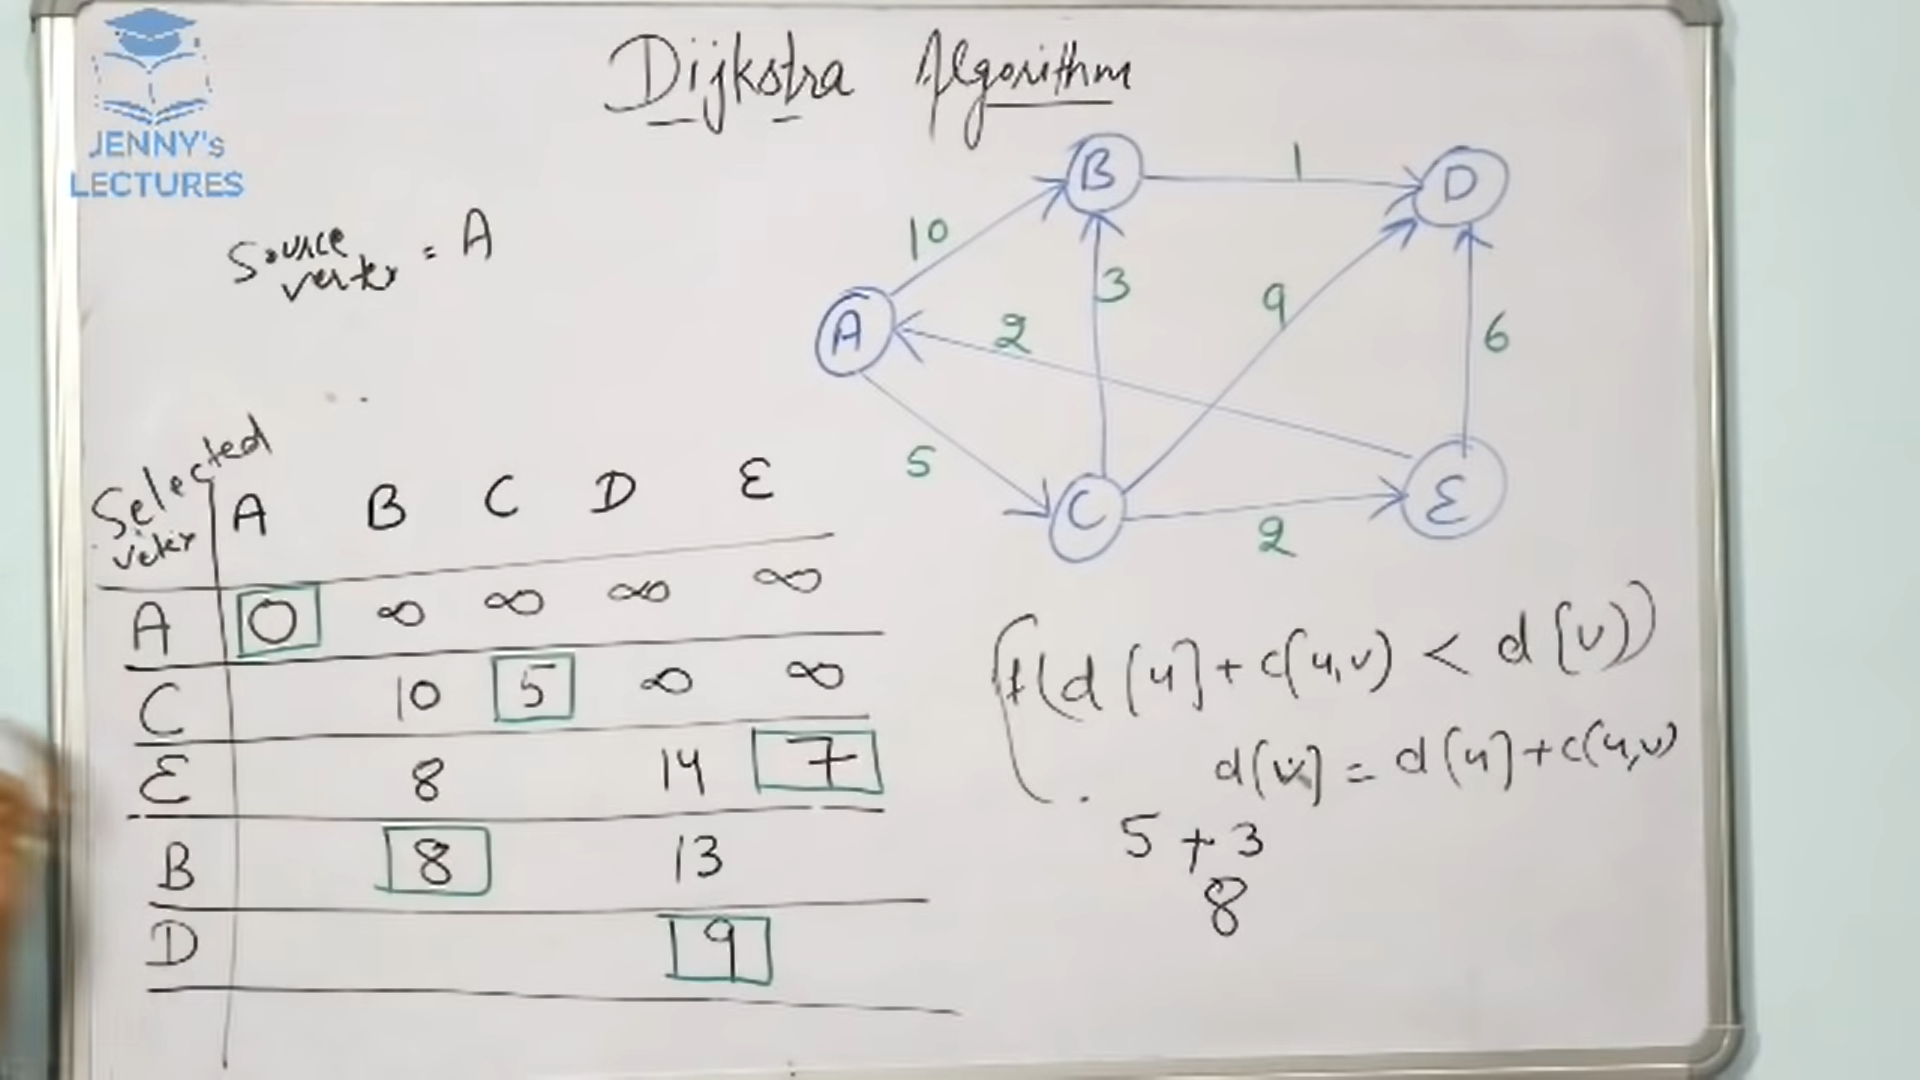 JENNY's
LECTURES
Dijkstra Algorithm
Source
vertex = A
B
1
D
10
3
9
A
2
6
5
C
2
E
Selected
A B C D E
A 0 ∞ ∞ ∞ ∞
C 10 5 ∞ ∞
E 8 14 7
B 8 13
D 9
if(d[u]+c(u,v) < d[v])
d[v] = d[u]+c(u,v)
5 + 3
8